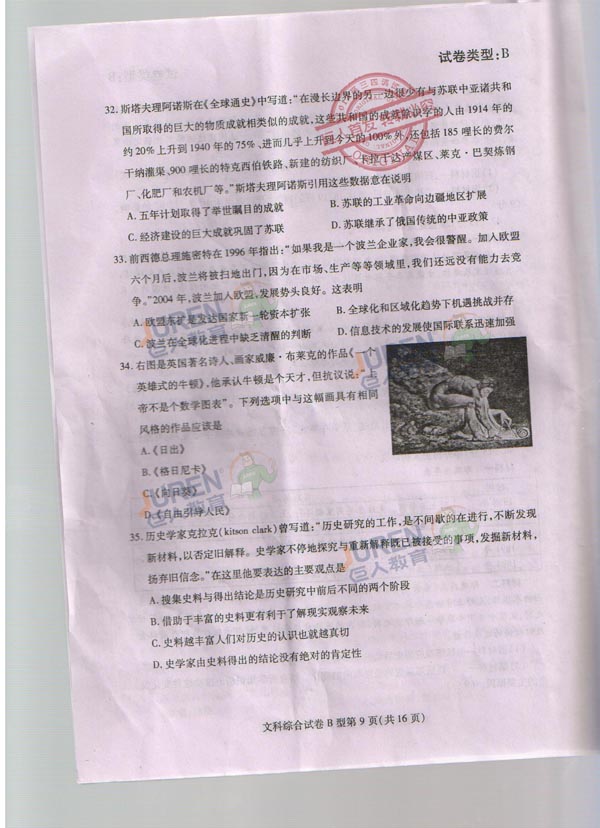 试卷类型:B
32.斯塔夫理阿诺斯在《全球通史》中写道:“在漫长边界的另一边很少有与苏联中亚诸共和
国所取得的巨大的物质成就相类似的成就,这些共和国的成就除识字的人由1914年的
约20%上升到1940年的75%、进而几乎上升到今天的100%外,还包括185哩长的费尔
干纳灌渠、900哩长的特克西伯铁路、新建的纺织厂、卡拉干达产煤区、莱克·巴契炼钢
厂、化肥厂和农机厂等。”斯塔夫理阿诺斯引用这些数据意在说明
A.五年计划取得了举世瞩目的成就 B.苏联的工业革命向边疆地区扩展
C.经济建设的巨大成就巩固了苏联 D.苏联继承了俄国传统的中亚政策
33.前西德总理施密特在1996年指出:“如果我是一个波兰企业家,我会很警醒。加入欧盟
六个月后,波兰将被扫地出门,因为在市场、生产等等领域里,我们还远没有能力去竞
争。”2004年,波兰加入欧盟,发展势头良好。这表明
A.欧盟东扩是发达国家新一轮资本扩张 B.全球化和区域化趋势下机遇挑战并存
C.波兰在全球化进程中缺乏清醒的判断 D.信息技术的发展使国际联系迅速加强
34.右图是英国著名诗人、画家威廉·布莱克的作品《一个
英雄式的牛顿》,他承认牛顿是个天才,但抗议说:“上
帝不是个数学图表”。下列选项中与这幅画具有相同
风格的作品应该是
A.《日出》
B.《格日尼卡》
C.《向日葵》
D.《自由引导人民》
35.历史学家克拉克(kitson clark)曾写道:“历史研究的工作,是不间歇的在进行,不断发现
新材料,以否定旧解释。史学家不停地探究与重新解释既已被接受的事项,发掘新材料,
扬弃旧信念。”在这里他要表达的主要观点是
A.搜集史料与得出结论是历史研究中前后不同的两个阶段
B.借助于丰富的史料更有利于了解现实观察未来
C.史料越丰富人们对历史的认识也就越真切
D.史学家由史料得出的结论没有绝对的肯定性
文科综合试卷B型第9页(共16页)
JUREN
巨人教育
JUREN
巨人教育
巨人教育